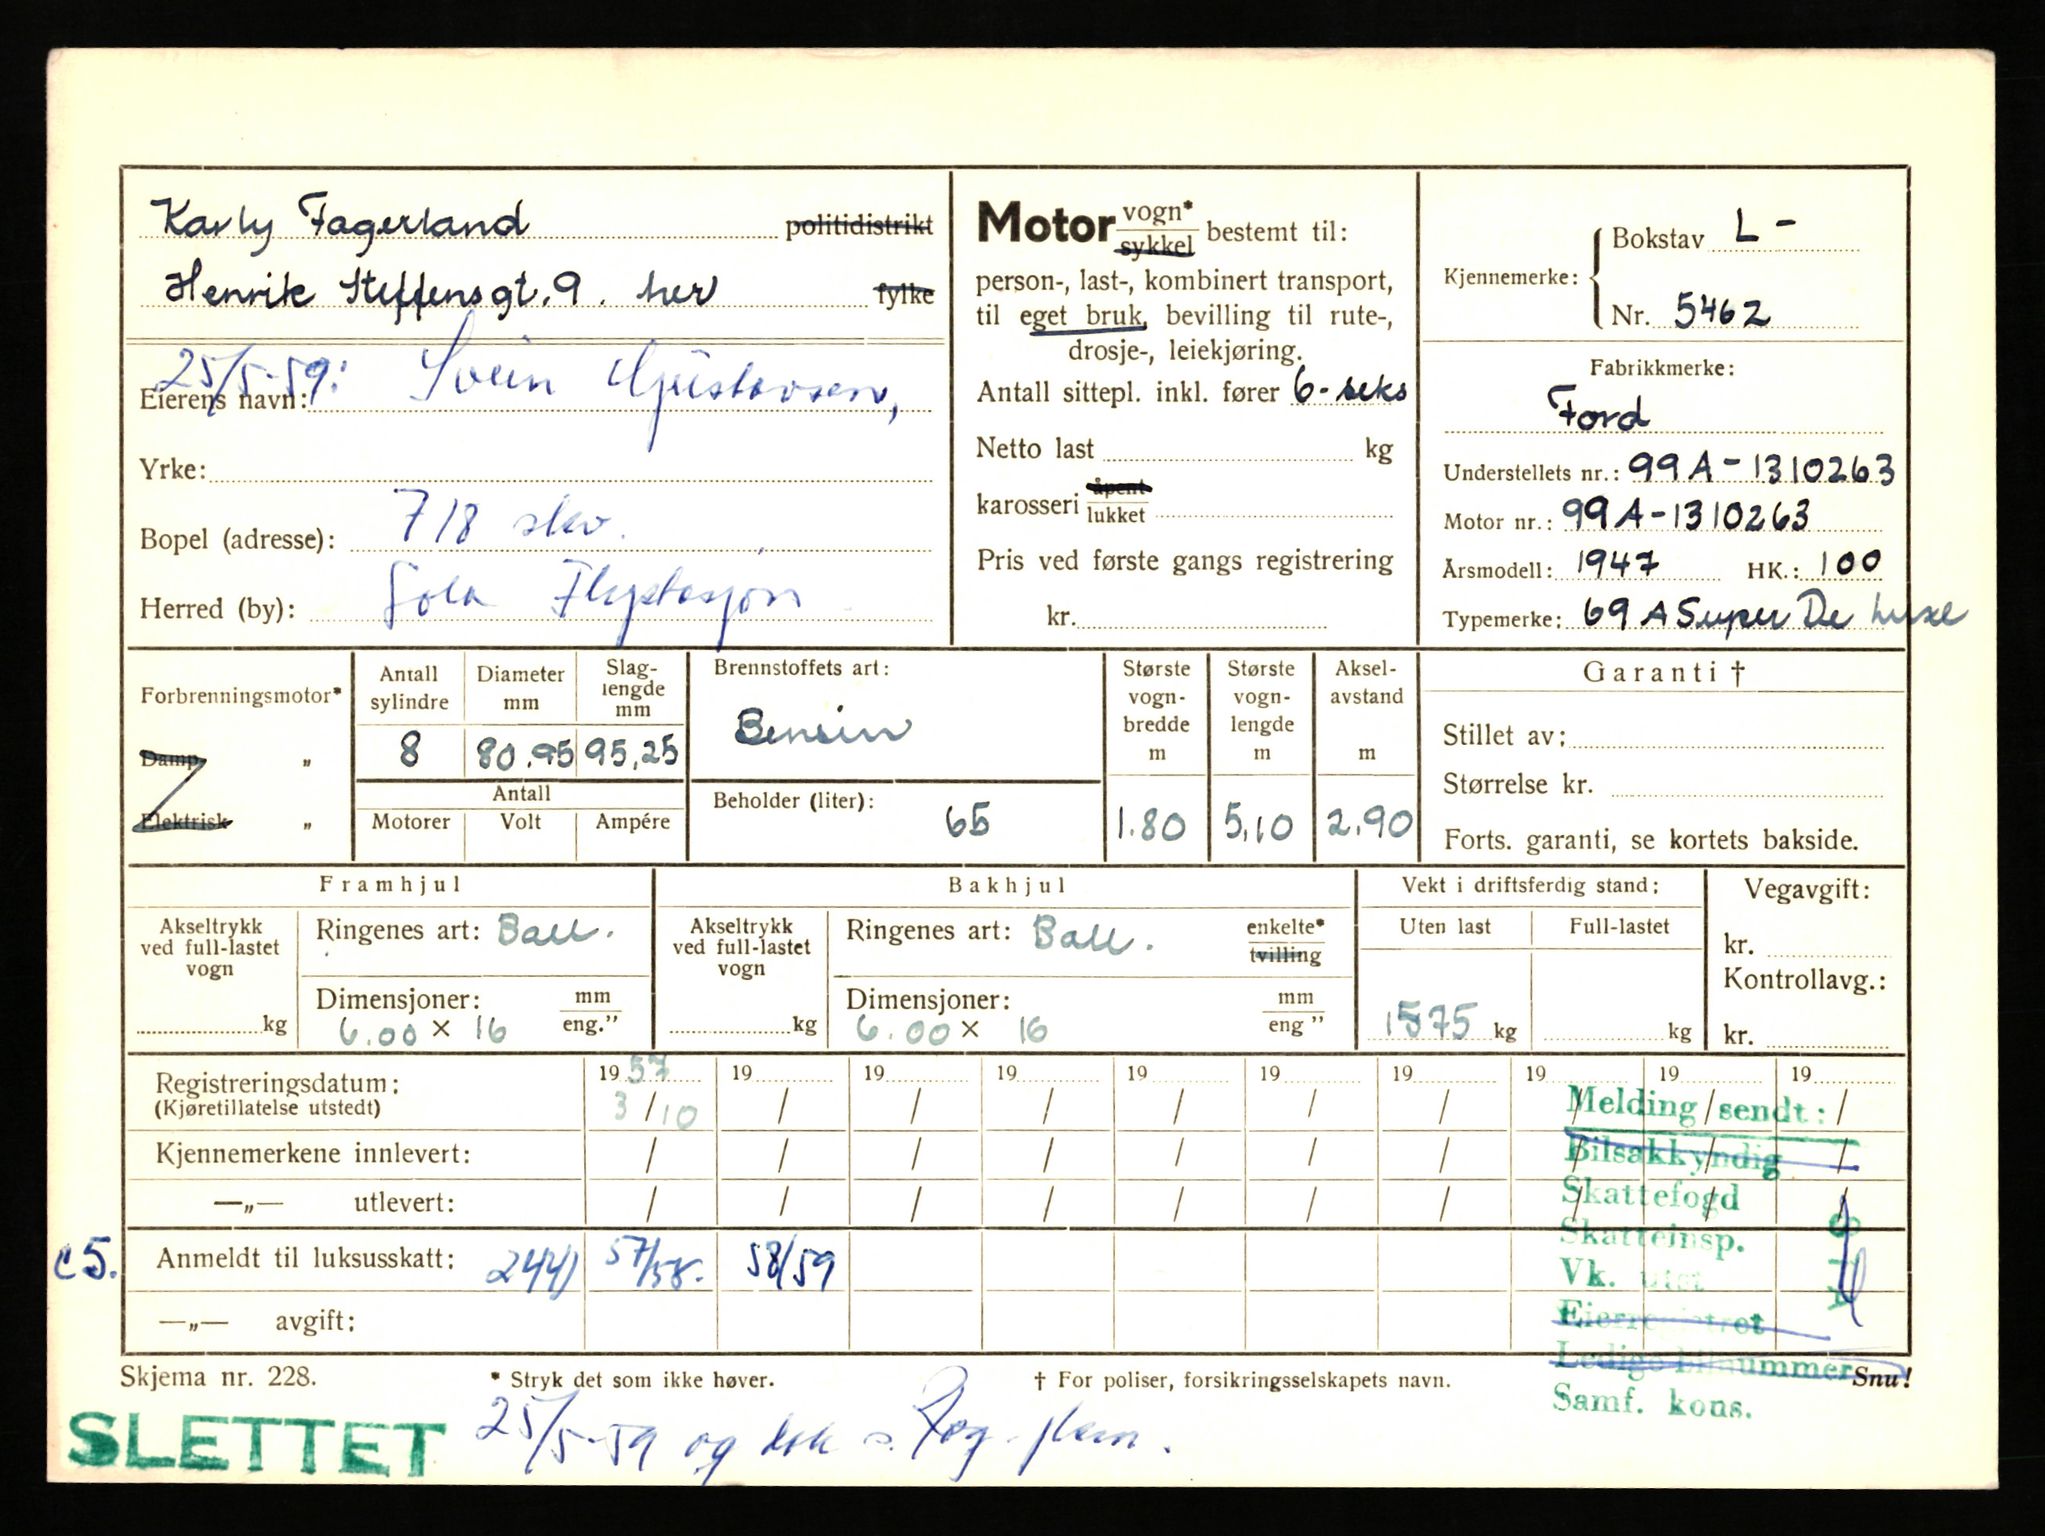 Karly Fagerland politidistrikt
Henrik Steffensgt. 9. her fylke
25/5-59: Svein Gustavsen,
Eierens navn:
Yrke:
718 skv.
Bopel (adresse):
Sola Flystasjon
Herred (by):
Motor vogn* sykkel bestemt til:
person-, last-, kombinert transport,
til eget bruk, bevilling til rute-,
drosje-, leiekjøring.
Antall sittepl. inkl. fører 6-seks
Netto last kg
karosseri åpent lukket
Pris ved første gangs registrering
kr.
Kjennemerke: Bokstav L -
Nr. 5462
Fabrikkmerke:
Ford
Understellets nr.: 99A-1310263
Motor nr.: 99A-1310263
Årsmodell: 1947 HK.: 100
Typemerke: 69 A Super De luxe
Forbrenningsmotor*
Damp „
Elektrisk „
Antall sylindre
8
Diameter mm
80.95
Slag-lengde mm
95,25
Antall
Motorer Volt Ampére
Brennstoffets art:
Bensin
Beholder (liter):
65
Største vogn-bredde m
1.80
Største vogn-lengde m
5,10
Aksel-avstand m
2.90
Garanti †
Stillet av:
Størrelse kr.
Forts. garanti, se kortets bakside.
Framhjul
Akseltrykk ved full-lastet vogn
kg
Ringenes art: Ball.
Dimensjoner: mm
6.00 × 16 eng."
Bakhjul
Akseltrykk ved full-lastet vogn
kg
Ringenes art: Ball. enkelte* tvilling
Dimensjoner: mm
6.00 × 16 eng "
Vekt i driftsferdig stand:
Uten last Full-lastet
1575 kg kg
Vegavgift:
kr.
Kontrollavg.:
kr.
Registreringsdatum: 1957 19 19 19 19 19 19 19 19 19
(Kjøretillatelse utstedt) 3/10 / / / / / / / / /
Kjennemerkene innlevert: / / / / / / / / / /
—„— utlevert: / / / / / / / / / /
c5. Anmeldt til luksusskatt: 2441 57/58. 58/59
—„— avgift:
Melding sendt:
Bilsakkyndig
Skattefogd
Skatteinsp.
Vk. utst
Eierregistret
Ledige bilnummer
Samf. kons.
Skjema nr. 228. * Stryk det som ikke høver. † For poliser, forsikringsselskapets navn. Snu!
SLETTET 25/5-59 og